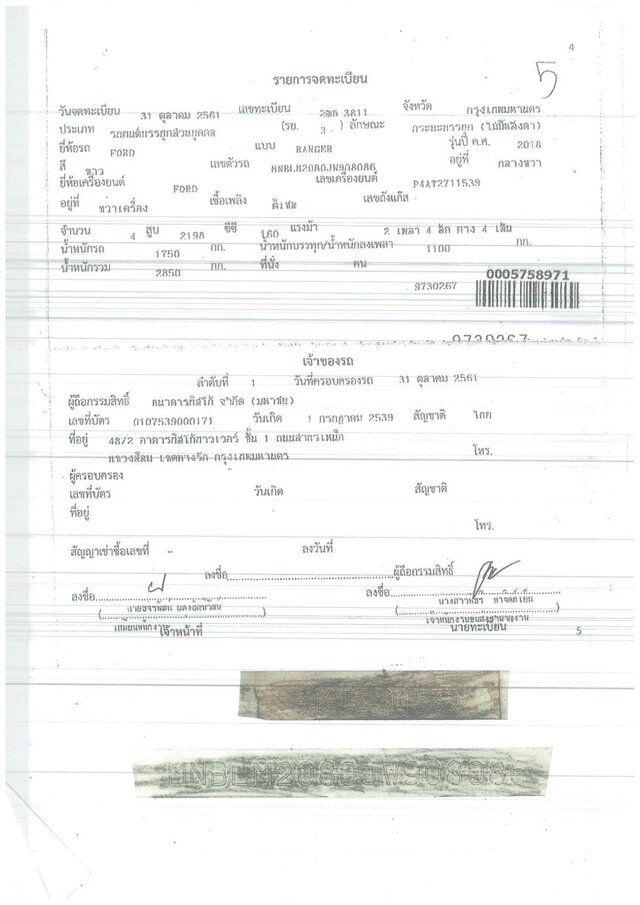 4
5
รายการจดทะเบียน
วันจดทะเบียน 31 ตุลาคม 2561 เลขทะเบียน 3811 จังหวัด กรุงเทพมหานคร
ประเภท รถยนต์บรรทุกส่วนบุคคล (รย. 3 ) ลักษณะ กระบะบรรทุก (ไม่มีหลังคา)
ยี่ห้อรถ FORD แบบ RANGER รุ่นปี ค.ศ. 2018
สี ขาว เลขตัวรถ MNBLM2080JW908086 อยู่ที่ กลางขวา
ยี่ห้อเครื่องยนต์ FORD เลขเครื่องยนต์ P4AT2711539
อยู่ที่ ขวาเครื่อง เชื้อเพลิง ดีเซล เลขถังแก๊ส
จำนวน 4 สูบ 2198 ซีซี 160 แรงม้า 2 เพลา 4 ล้อ ยาง 4 เส้น
น้ำหนักรถ 1750 กก. น้ำหนักบรรทุก/น้ำหนักลงเพลา 1100 กก.
น้ำหนักรวม 2850 กก. ที่นั่ง คน
0005758971
9730267
9730267
เจ้าของรถ
ลำดับที่ 1 วันที่ครอบครองรถ 31 ตุลาคม 2561
ผู้ถือกรรมสิทธิ์ ธนาคารทิสโก้ จำกัด (มหาชน)
เลขที่บัตร 0107539000171 วันเกิด 1 กรกฎาคม 2539 สัญชาติ ไทย
ที่อยู่ 48/2 อาคารทิสโก้ทาวเวอร์ ชั้น 1 ถนนสาทรเหนือ
แขวงสีลม เขตบางรัก กรุงเทพมหานคร โทร.
ผู้ครอบครอง
เลขที่บัตร วันเกิด สัญชาติ
ที่อยู่
โทร.
สัญญาเช่าซื้อเลขที่ - ลงวันที่
ลงชื่อ ผู้ถือกรรมสิทธิ์
ลงชื่อ ลงชื่อ
เจ้าหน้าที่ นายทะเบียน
5
MNBLM2080JW908086